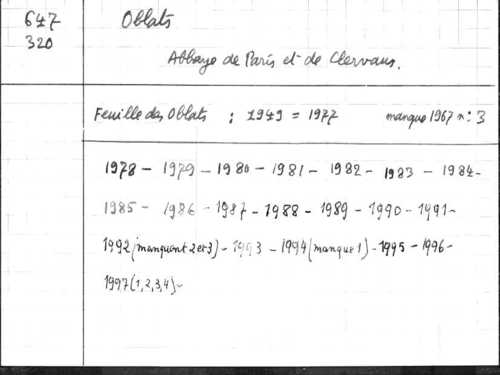 647
320
Oblats
Abbaye de Paris et de Clervaux.
Feuille des Oblats : 1949 = 1977 manque 1967 n: 3
1978 - 1979 - 1980 - 1981 - 1982 - 1983 - 1984 -
1985 - 1986 - 1987 - 1988 - 1989 - 1990 - 1991 -
1992 (manquent 2 et 3) - 1993 - 1994 (manque 1) - 1995 - 1996 -
1997 (1, 2, 3, 4) -